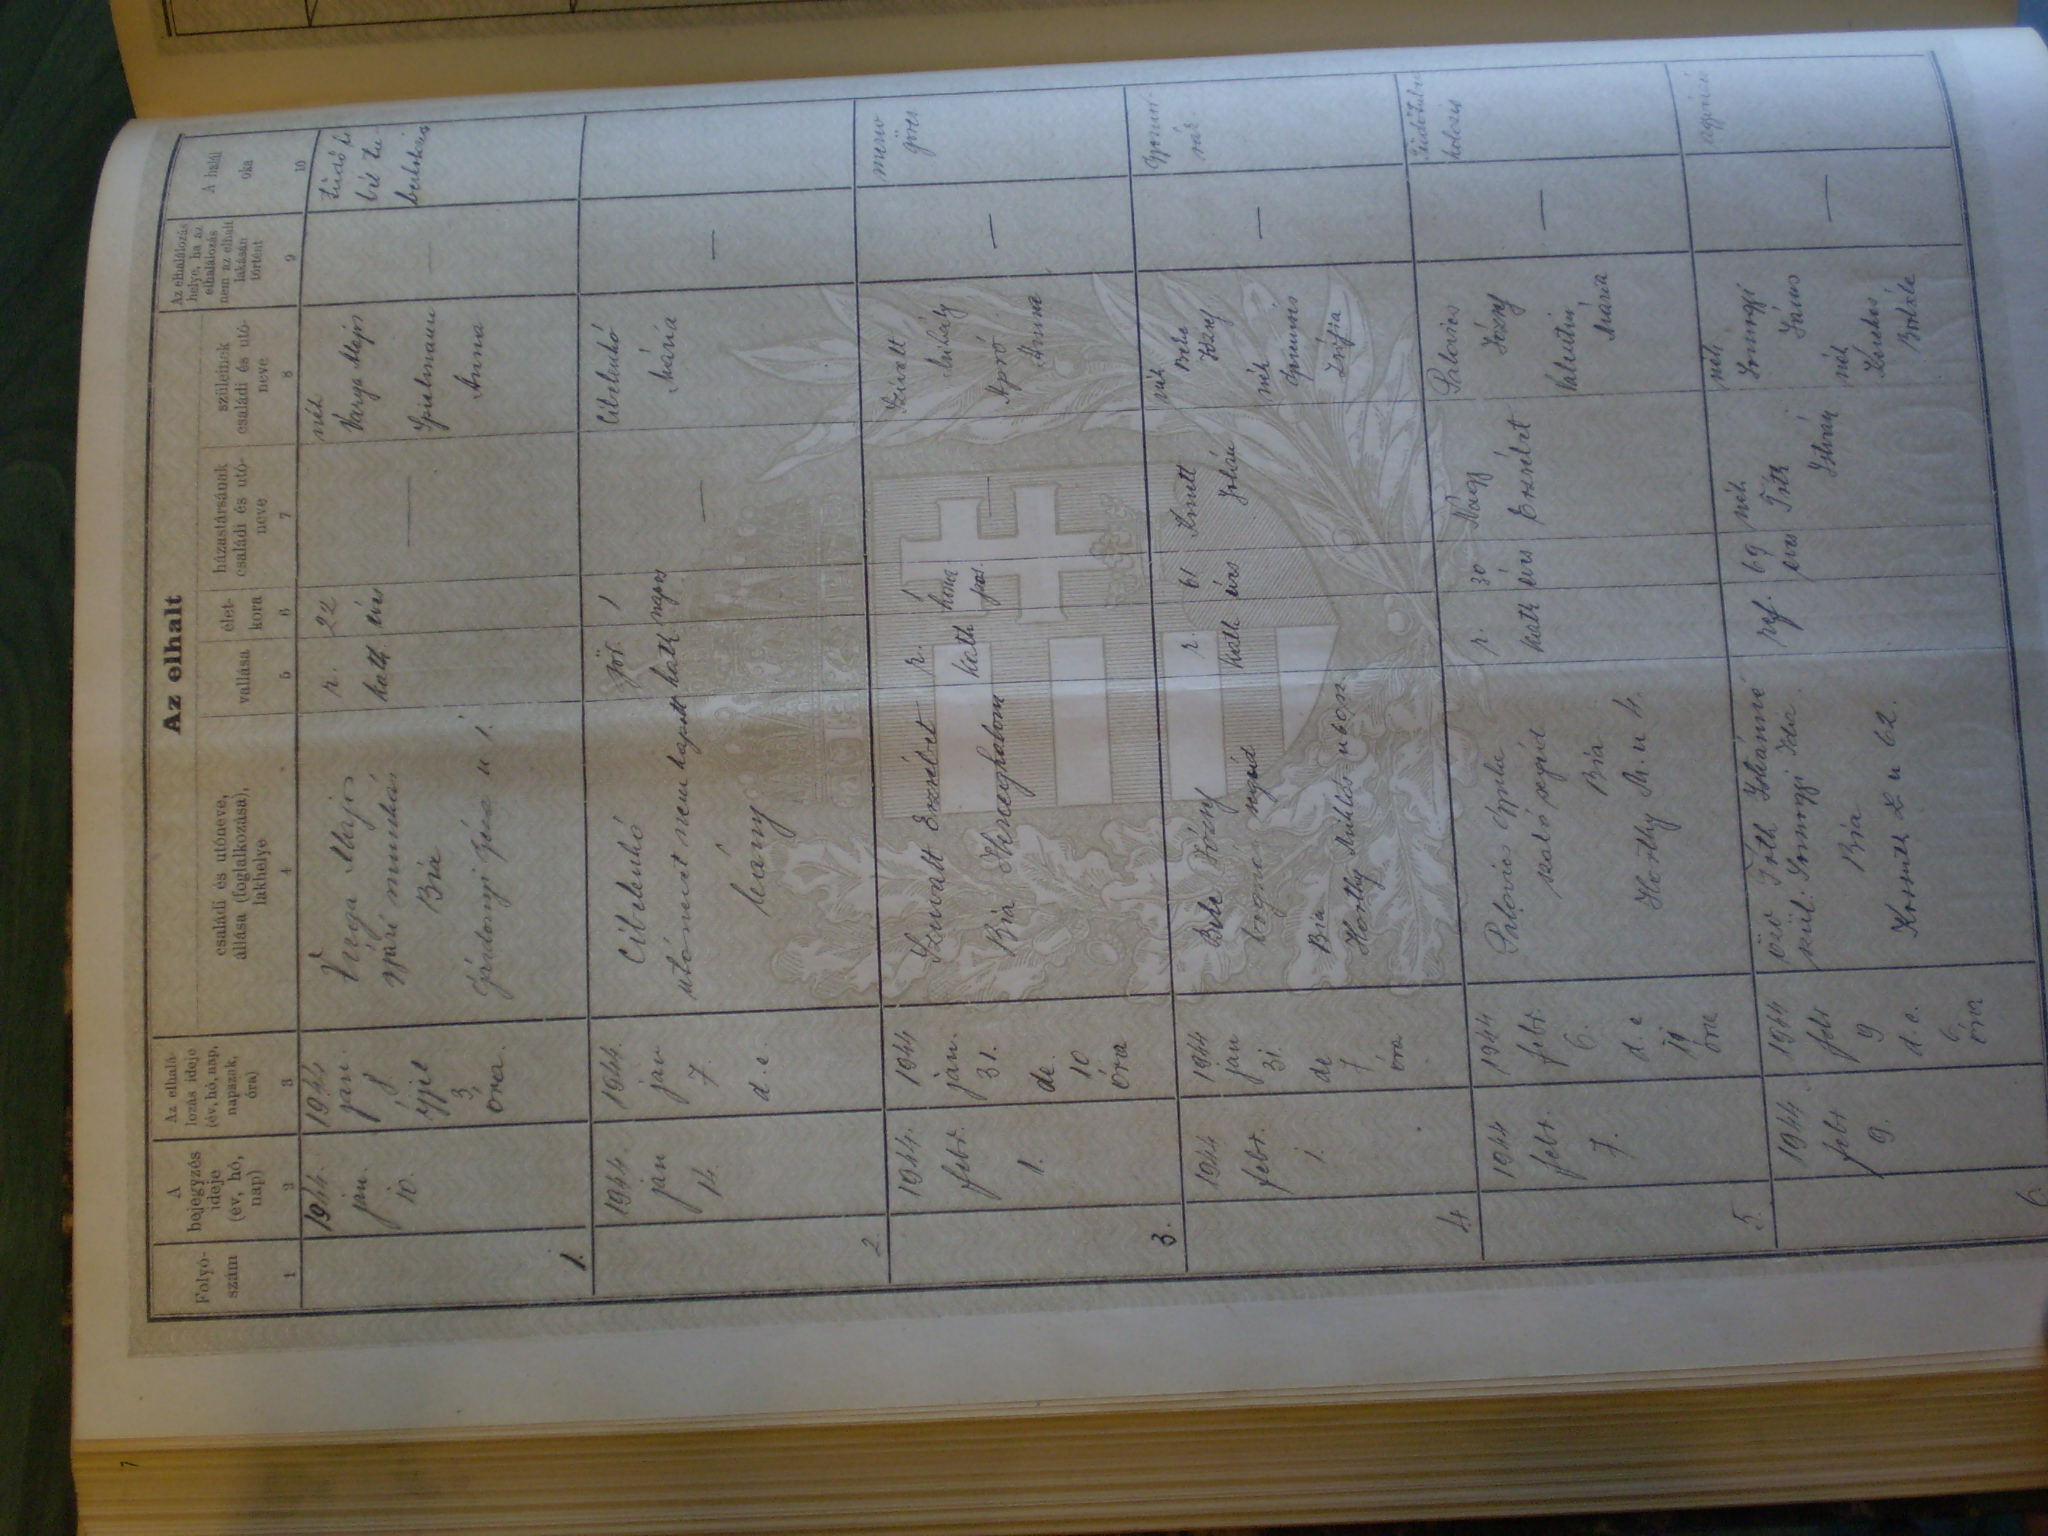 Az elhalt
Folyó-
szám
A
bejegyzés
ideje
(év, hó,
nap)
Az elhalá-
lozás ideje
(év, hó, nap,
napszak,
óra)
családi és utóneve,
állása (foglalkozása),
lakhelye
vallása
élet-
kora
házastársának
családi és utó-
neve
szüleinek
családi és utó-
neve
Az elhalálozás
helye, ha az
elhalálozás
nem az elhalt
lakásán
történt
A halál
oka
1
2
3
4
5
6
7
8
9
10
1.
1944.
jan.
10.
1944
jan.
8.
éjjel
3
óra.
Varga Alajos
gyári munkás
Bia
Gárdonyi Géza u 1.
r.
kath
22
éves
—
néh
Varga Alajos
Spielmann
Anna
—
2.
1944.
jan
14.
1944.
jan
7.
d.e.
utónevet nem kapott
leány
gör.
kath
1
napos
—
Mária
—
3.
1944.
febr.
1.
1944
jan.
31.
de.
10
óra
Szivatt Erzsébet
Bia Herceghalom
r.
kath
1
hóna
pos.
—
Szivatt
Mihály
Apró
Anna
—
4.
1944
febr.
1.
1944
jan
31.
de
7
óra
Bele József
bognár segéd
Bia
Horthy Miklós u
r.
kath
61
éves
néh
Bele
József
néh
Zsófia
—
5.
1944
febr.
7.
1944
febr.
6.
d.e
óra
Palovics Gyula
szabó segéd
Bia
Horthy M. u 4.
r.
kath
30
éves
Nagy
Erzsébet
Palovics
József
Valentin
Mária
—
6
1944
febr
9.
1944
febr
9
d.e.
6.
óra
özv Tóth Istvánné
szül. Somogyi Ida
Bia
Kossuth L u 62.
ref.
69
éves
néh
Tóth
István
néh
Somogyi
János
néh
—